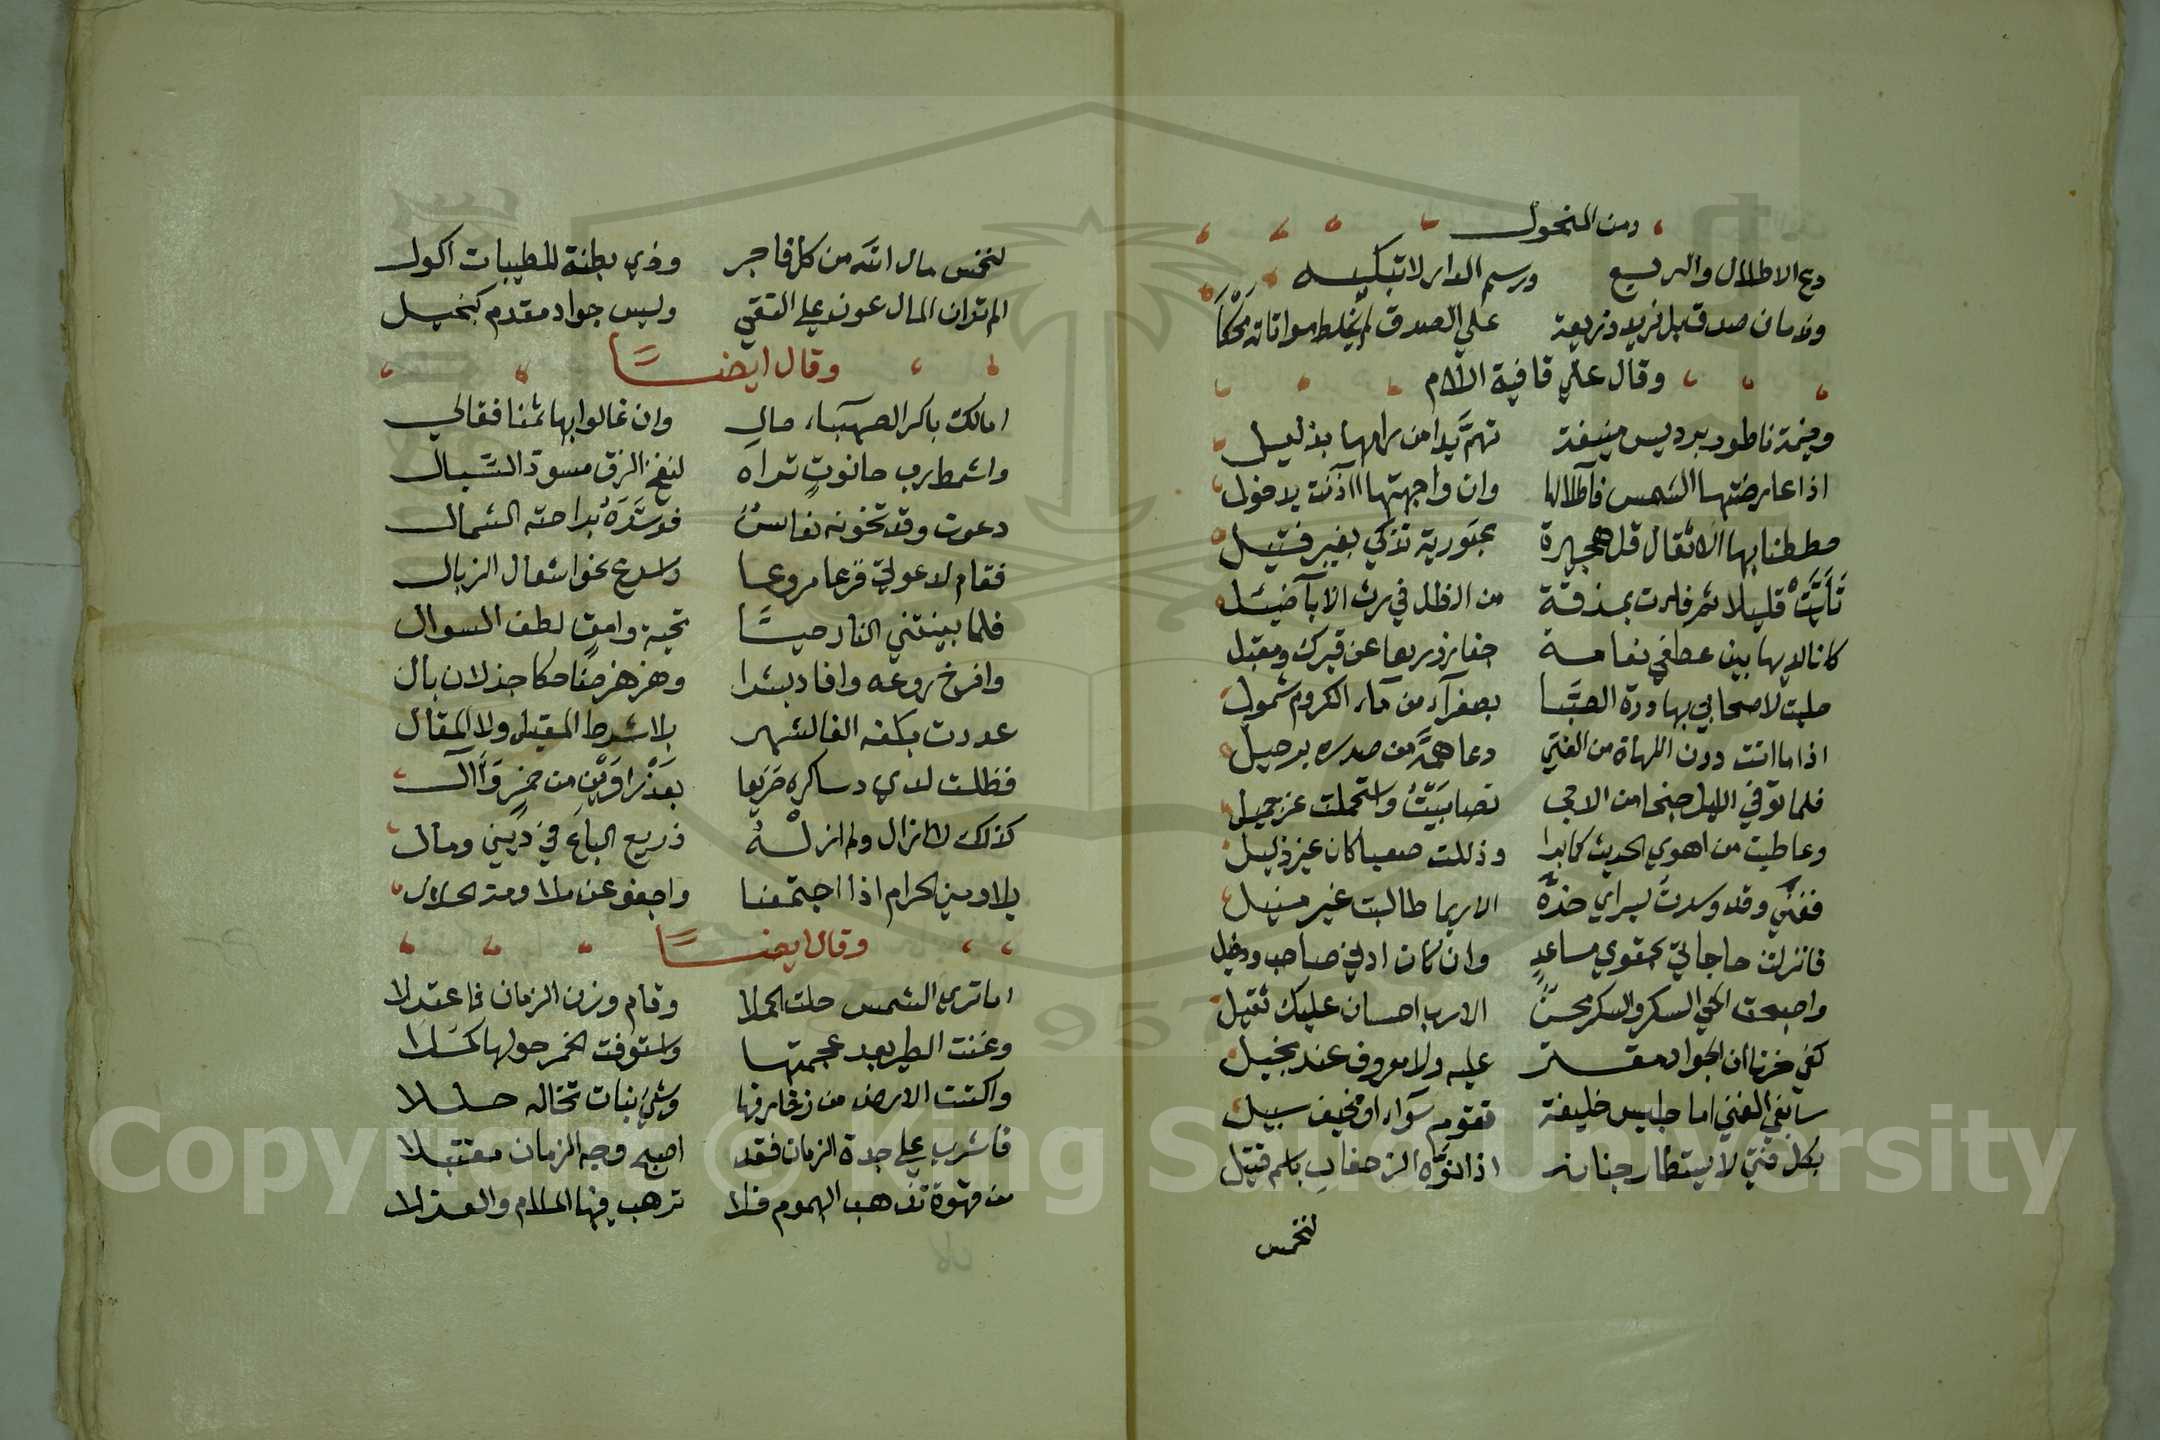 ومن المنحول
دع الاطلال والربع ورسم الدار لا تبكيه
وندمان صدق بل نريد ونربعة على الصدق لم يخلط مواتاته محكا
وقال على قافية اللام
وخيمة ناطور برديس منيفة تهم يدا من رامها بذليل
اذا عارضتها الشمس فآطلالها وان واجهتها اآذنت بدخول
حططنا بها الاثقال فل هجيرة عبورية تذكي بغير فتيل
تأنت قليلا ثم فاءت بمذقة من الظل في رث الابآ ضئيل
كانا لديها بين عطفي نعامة جفا زورها عن مبرك ومقيل
حلبت لاصحابي بها درة الصبا بصفرآء من مآء الكروم شمول
اذا ما اتت دون اللهاة من الفتى دعا همه من صدره برحيل
فلما توفي الليل جنحا من الدجى تصابيت واستجملت غير جميل
وعاطيت من اهوى الحديث كما بدا وذللت صعبا كان غير ذليل
فغنى وقد وسدت يسراي خده الا ربما طالبت غير منيل
فانزلت حاجاتي بحقوي مساعد وان كان ادنى صاحب ودخيل
واصبحت الحي السكر والسكر محسن الا رب احسان عليك ثقيل
كفى حزنا ان الجواد مقتر عليه ولا معروف عند بخيل
سابغي الغنى اما جليس خليفة تقوم سوآء او مخيف سبيل
بكل فتى لا يستطار جنانه اذا نوه الزحفان باسم قتيل
لنخمس
لنخمس مال الله من كل فاجر وذي بطنة للطيبات اكول
الم تر ان المال عون على التقى وليس جواد مقدم كبخيل
وقال ايضا
امالك باكر الصهبآء مال وان غالوا بها ثمنا فغالي
واشمط رب حانوت تراه لنفخ الزق مسود السبال
دعوت وقد تخونه نعاس فوسده براحته الشمال
فقام لدعوتي فزعا مروعا واسرع نحو اشعال الذبال
فلما بينتني النار حيا تحية وامق لطف السوال
وافرخ روعه وافاد بشرا وهزهز ضاحكا جذلان بال
عددت بكفه الفا لشهر بلا شرط المقيل ولا المقال
فظلت لدى دساكره عزيعا بعذراوين من خمر وآل
كذلك لا ازال ولم ازل ذريع الباع في ديني ومال
يلاومني الحرام اذا اجتمعنا واجفو عن ملاومة الحلال
وقال ايضا
اما ترى الشمس حلت الحملا وقام وزن الزمان فاعتدلا
وغنت الطير بعد عجمتها واستوفت الخمر حولها كملا
واكتست الارض من زخارفها وشي نبات تخاله حللا
فاشرب على جدة الزمان فقد اصبح وجه الزمان مقتبلا
من قهوة تذهب الهموم فلا ترهب فيها الملام والعذلا
Copyright © King Saud University
1957